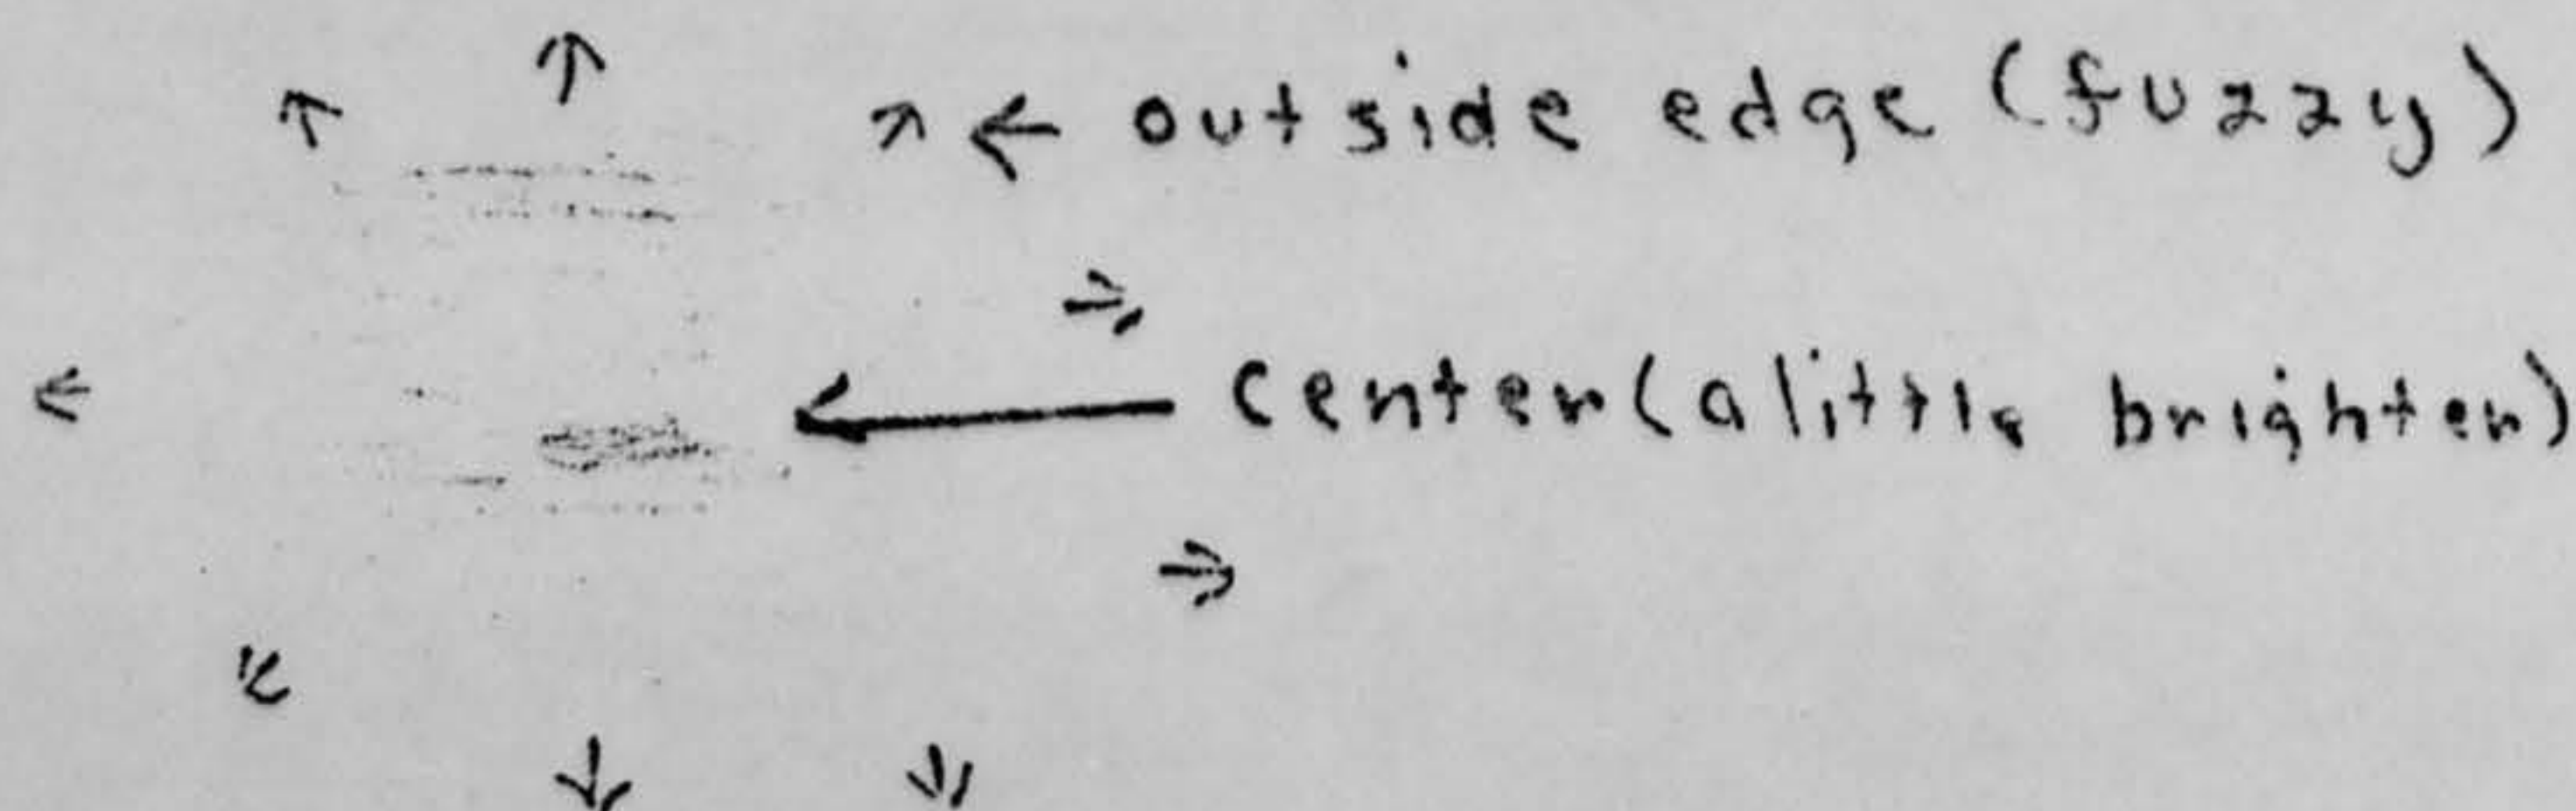 outside edge (fuzzy)
center (a little brighter)